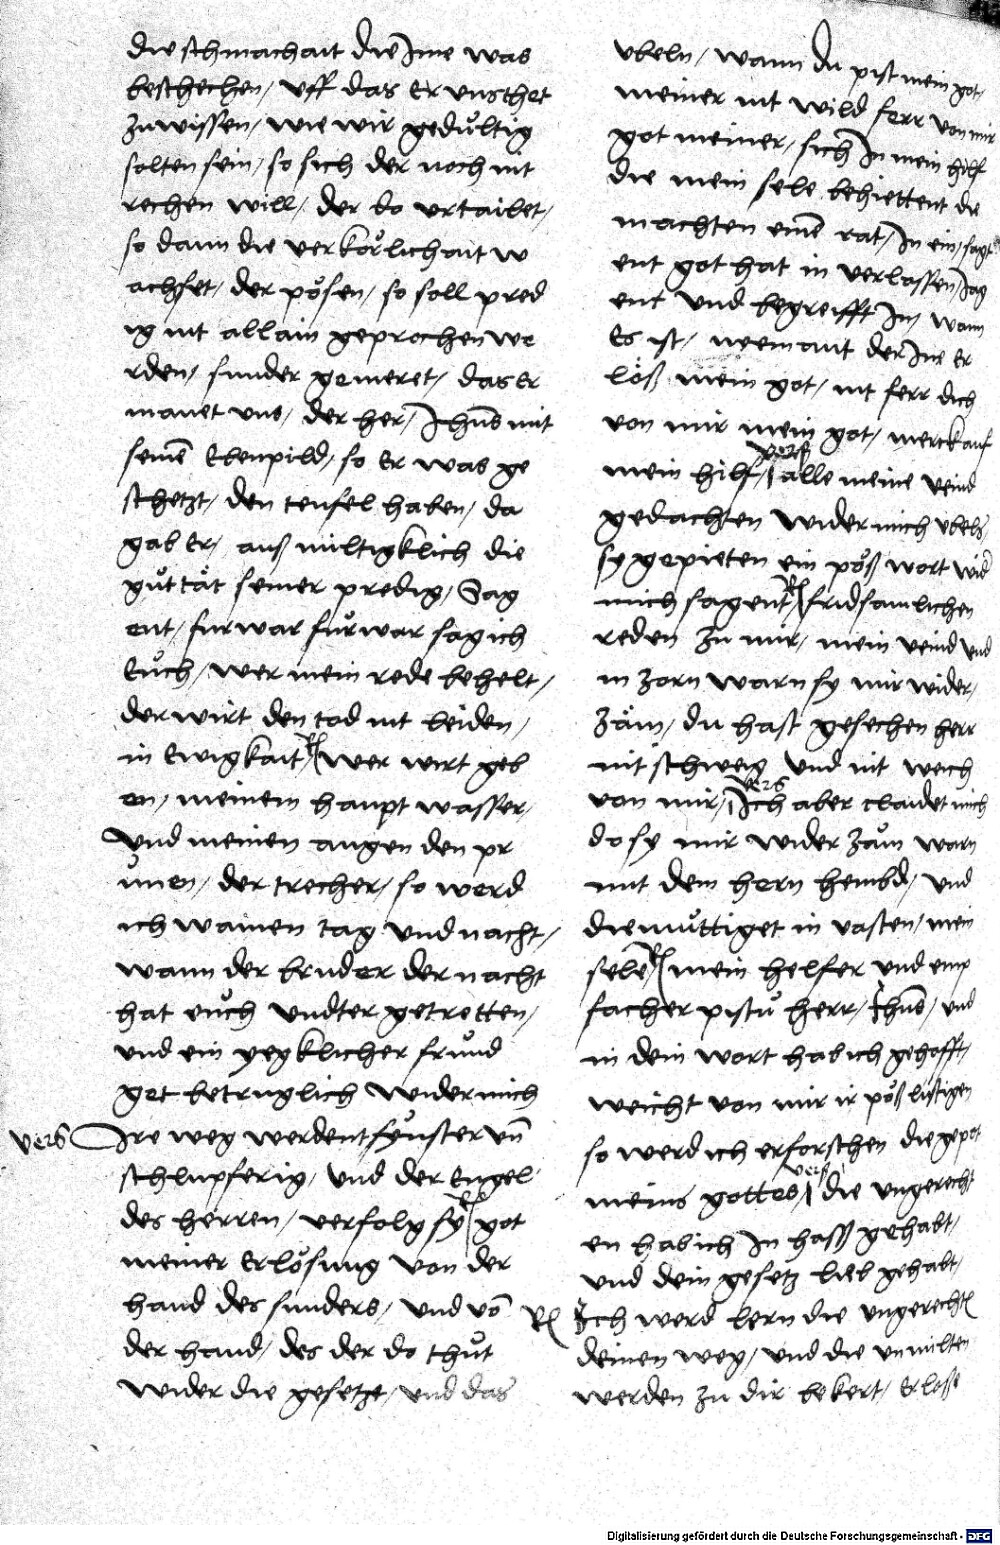 die schmachait die Ime was
beschechen / uff das Er uns thet
zuwissen / wie wir gedůltig
solten sein / so sich der noch nit
rechen will / der do urtailet /
so dann die verkörlichait w
achset / der pösen / so soll pred
ig nit allain gesprochen we
rden / sunder gemeret / das Er
manet uns / der her / Ihūs mit
seinē Ebenpild / so Er was ge
schetzt / den teufel haben / da
gab Er / auß miltigklich die
gůttät seiner predig / Sag
ent / furwar fůrwar sag ich
Eůch / wer mein rede behelt /
der wirt den tod nit leiden /
in Ewigkait / R wer wirt geb
en / meinem haupt wasser /
Und meinen augen den pr
ůnen / der trecher / so werd
ich wainen tag und nacht /
wann der bruder der nacht
hat eůch undter getretten /
und ein yegklicher frůnd
get betruglich wider mich
vers Ire weg werdent fynster uñ
schlupferig / und der Engel
des herren / verfolg sy R got
meiner Erlösung von der
hand des sunders / und vō
der hand / des der do thůt
wider die gesetzt / und das
ubeln / wann du pist mein got /
meiner nit wild ferr von mir
got meiner / sich In mein hilf
die mein sele behiettent die
machten einē rat / In ein / sagt
ent got hat in verlassen / Jag
ent und begreifft In / wann
Es ist / niemant der Ine Er
löß mein got / nit ferr dich
von mir mein got / merck auf
vers
mein hilf / alle meine veind
gedachten wider mich ubels /
sy gepieten ein pöß wort wider
mich sagent R fridsamlichen
reden zu mir / mein veind und
in zorn warn sy mir wider /
zäm / du hast gesechen herr
nit schweig und nit weich
vers
von mir / Ich aber claidet mich
do sy mir wider zäm warn
mit dem hern hembd / und
diemůttiget in vasten / mein
sele R mein helfer und emp
facher pistu herr / Ihūs / und
in dein wort hab ich gehofft /
weicht von mir ir pößlistigen
so werd ich erforschen die gepot
vers
meins gottes / die ungerecht
en hab ich In hass gehabt /
und dein gesetz lieb gehabt /
R Ich werd lern die ungerechtē
deinen weg / und die unmilten
werden zu dir bekert / Erlose
Digitalisierung gefördert durch die Deutsche Forschungsgemeinschaft - DFG